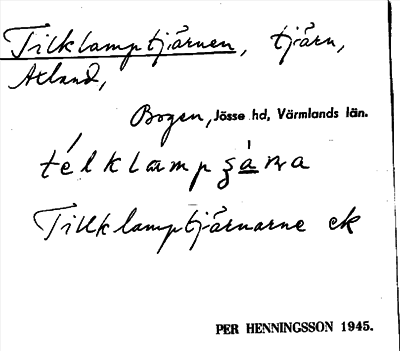 Tilklamptjärnen, tjärn,
Axland,
Bogen, Jösse hd, Värmlands län.
Tillklamptjärnarne ek
PER HENNINGSSON 1945.